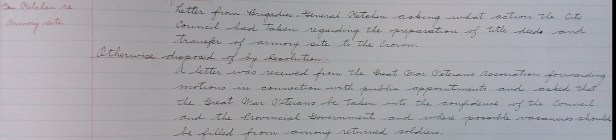 Gen Ketchen re
Armory site
Letter from Brigadier-General Ketchen asking what action the City
Council had taken regarding the preparation of title deeds and
transfer of armory site to the Crown.
Otherwise disposed of by Resolution.
A letter was received from the Great War Veterans Association forwarding
motions in connection with public appointments and asked that
the Great War Veterans be taken into the confidence of the Council
and the Provincial Government and where possible vacancies should
be filled from among returned soldiers.